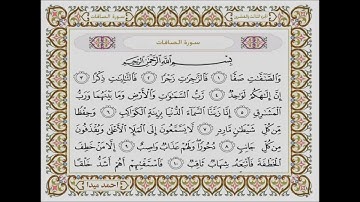 سورة الصافات
الجزء الثالث والعشرون
سورة الصافات
بِسْمِ اللَّهِ الرَّحْمَٰنِ الرَّحِيمِ
وَالصَّافَّاتِ صَفًّا ١ فَالزَّاجِرَاتِ زَجْرًا ٢ فَالتَّالِيَاتِ ذِكْرًا ٣
إِنَّ إِلَٰهَكُمْ لَوَاحِدٌ ٤ رَبُّ السَّمَاوَاتِ وَالْأَرْضِ وَمَا بَيْنَهُمَا وَرَبُّ
الْمَشَارِقِ ٥ إِنَّا زَيَّنَّا السَّمَاءَ الدُّنْيَا بِزِينَةٍ الْكَوَاكِبِ ٦ وَحِفْظًا
مِنْ كُلِّ شَيْطَانٍ مَارِدٍ ٧ لَا يَسَّمَّعُونَ إِلَى الْمَلَإِ الْأَعْلَىٰ وَيُقْذَفُونَ
مِنْ كُلِّ جَانِبٍ ٨ دُحُورًا وَلَهُمْ عَذَابٌ وَاصِبٌ ٩ إِلَّا مَنْ خَطِفَ
الْخَطْفَةَ فَأَتْبَعَهُ شِهَابٌ ثَاقِبٌ ١٠ فَاسْتَفْتِهِمْ أَهُمْ أَشَدُّ خَلْقًا
احمد عبدا